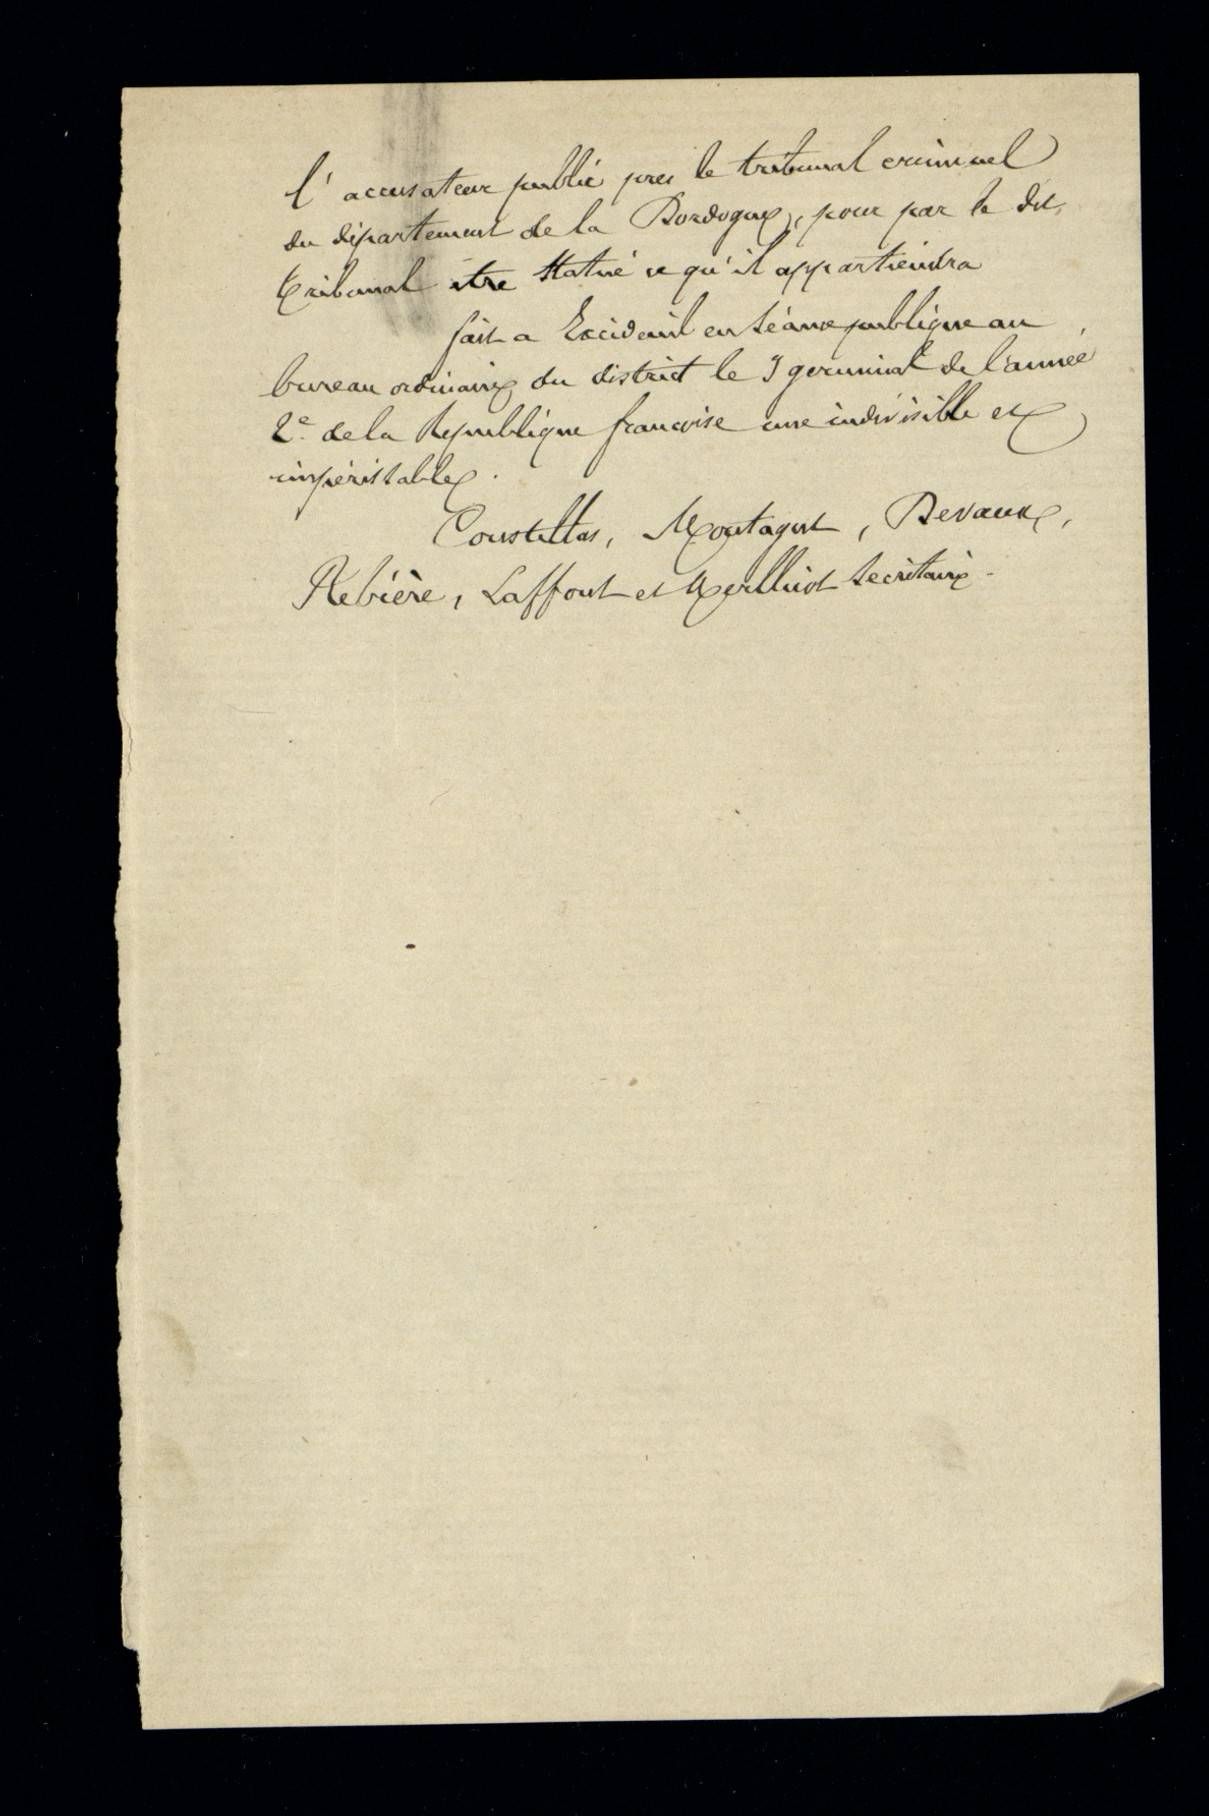 l'accusateur public pres le tribunal criminel
du département de la Dordogne, pour par le dit
tribunal être statué ce qu'il appartiendra
fait a Excideuil en séance publique au
bureau ordinaire du district le 9 germinal de l'année
2e. de la République françoise une indivisible et
impérissable.
Coustillas, Montagut, Devaux,
Rebière, Laffont et Merlhiot secrétaire.